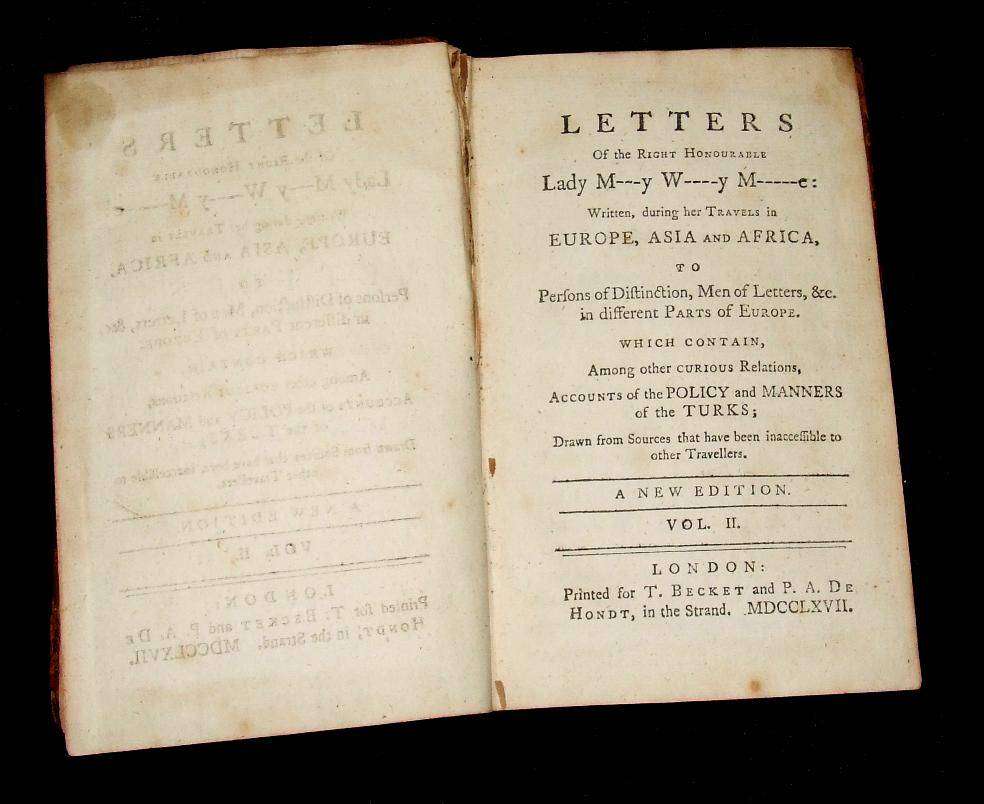 LETTERS
Of the RIGHT HONOURABLE
Lady M---y W----y M-----e:
Written, during her TRAVELS in
EUROPE, ASIA AND AFRICA,
TO
Perſons of Diſtinction, Men of Letters, &c.
in different PARTS of EUROPE.
WHICH CONTAIN,
Among other CURIOUS Relations,
ACCOUNTS of the POLICY and MANNERS
of the TURKS;
Drawn from Sources that have been inacceſſible to
other Travellers.
A NEW EDITION.
VOL. II.
LONDON:
Printed for T. BECKET and P. A. DE
HONDT, in the Strand. MDCCLXVII.